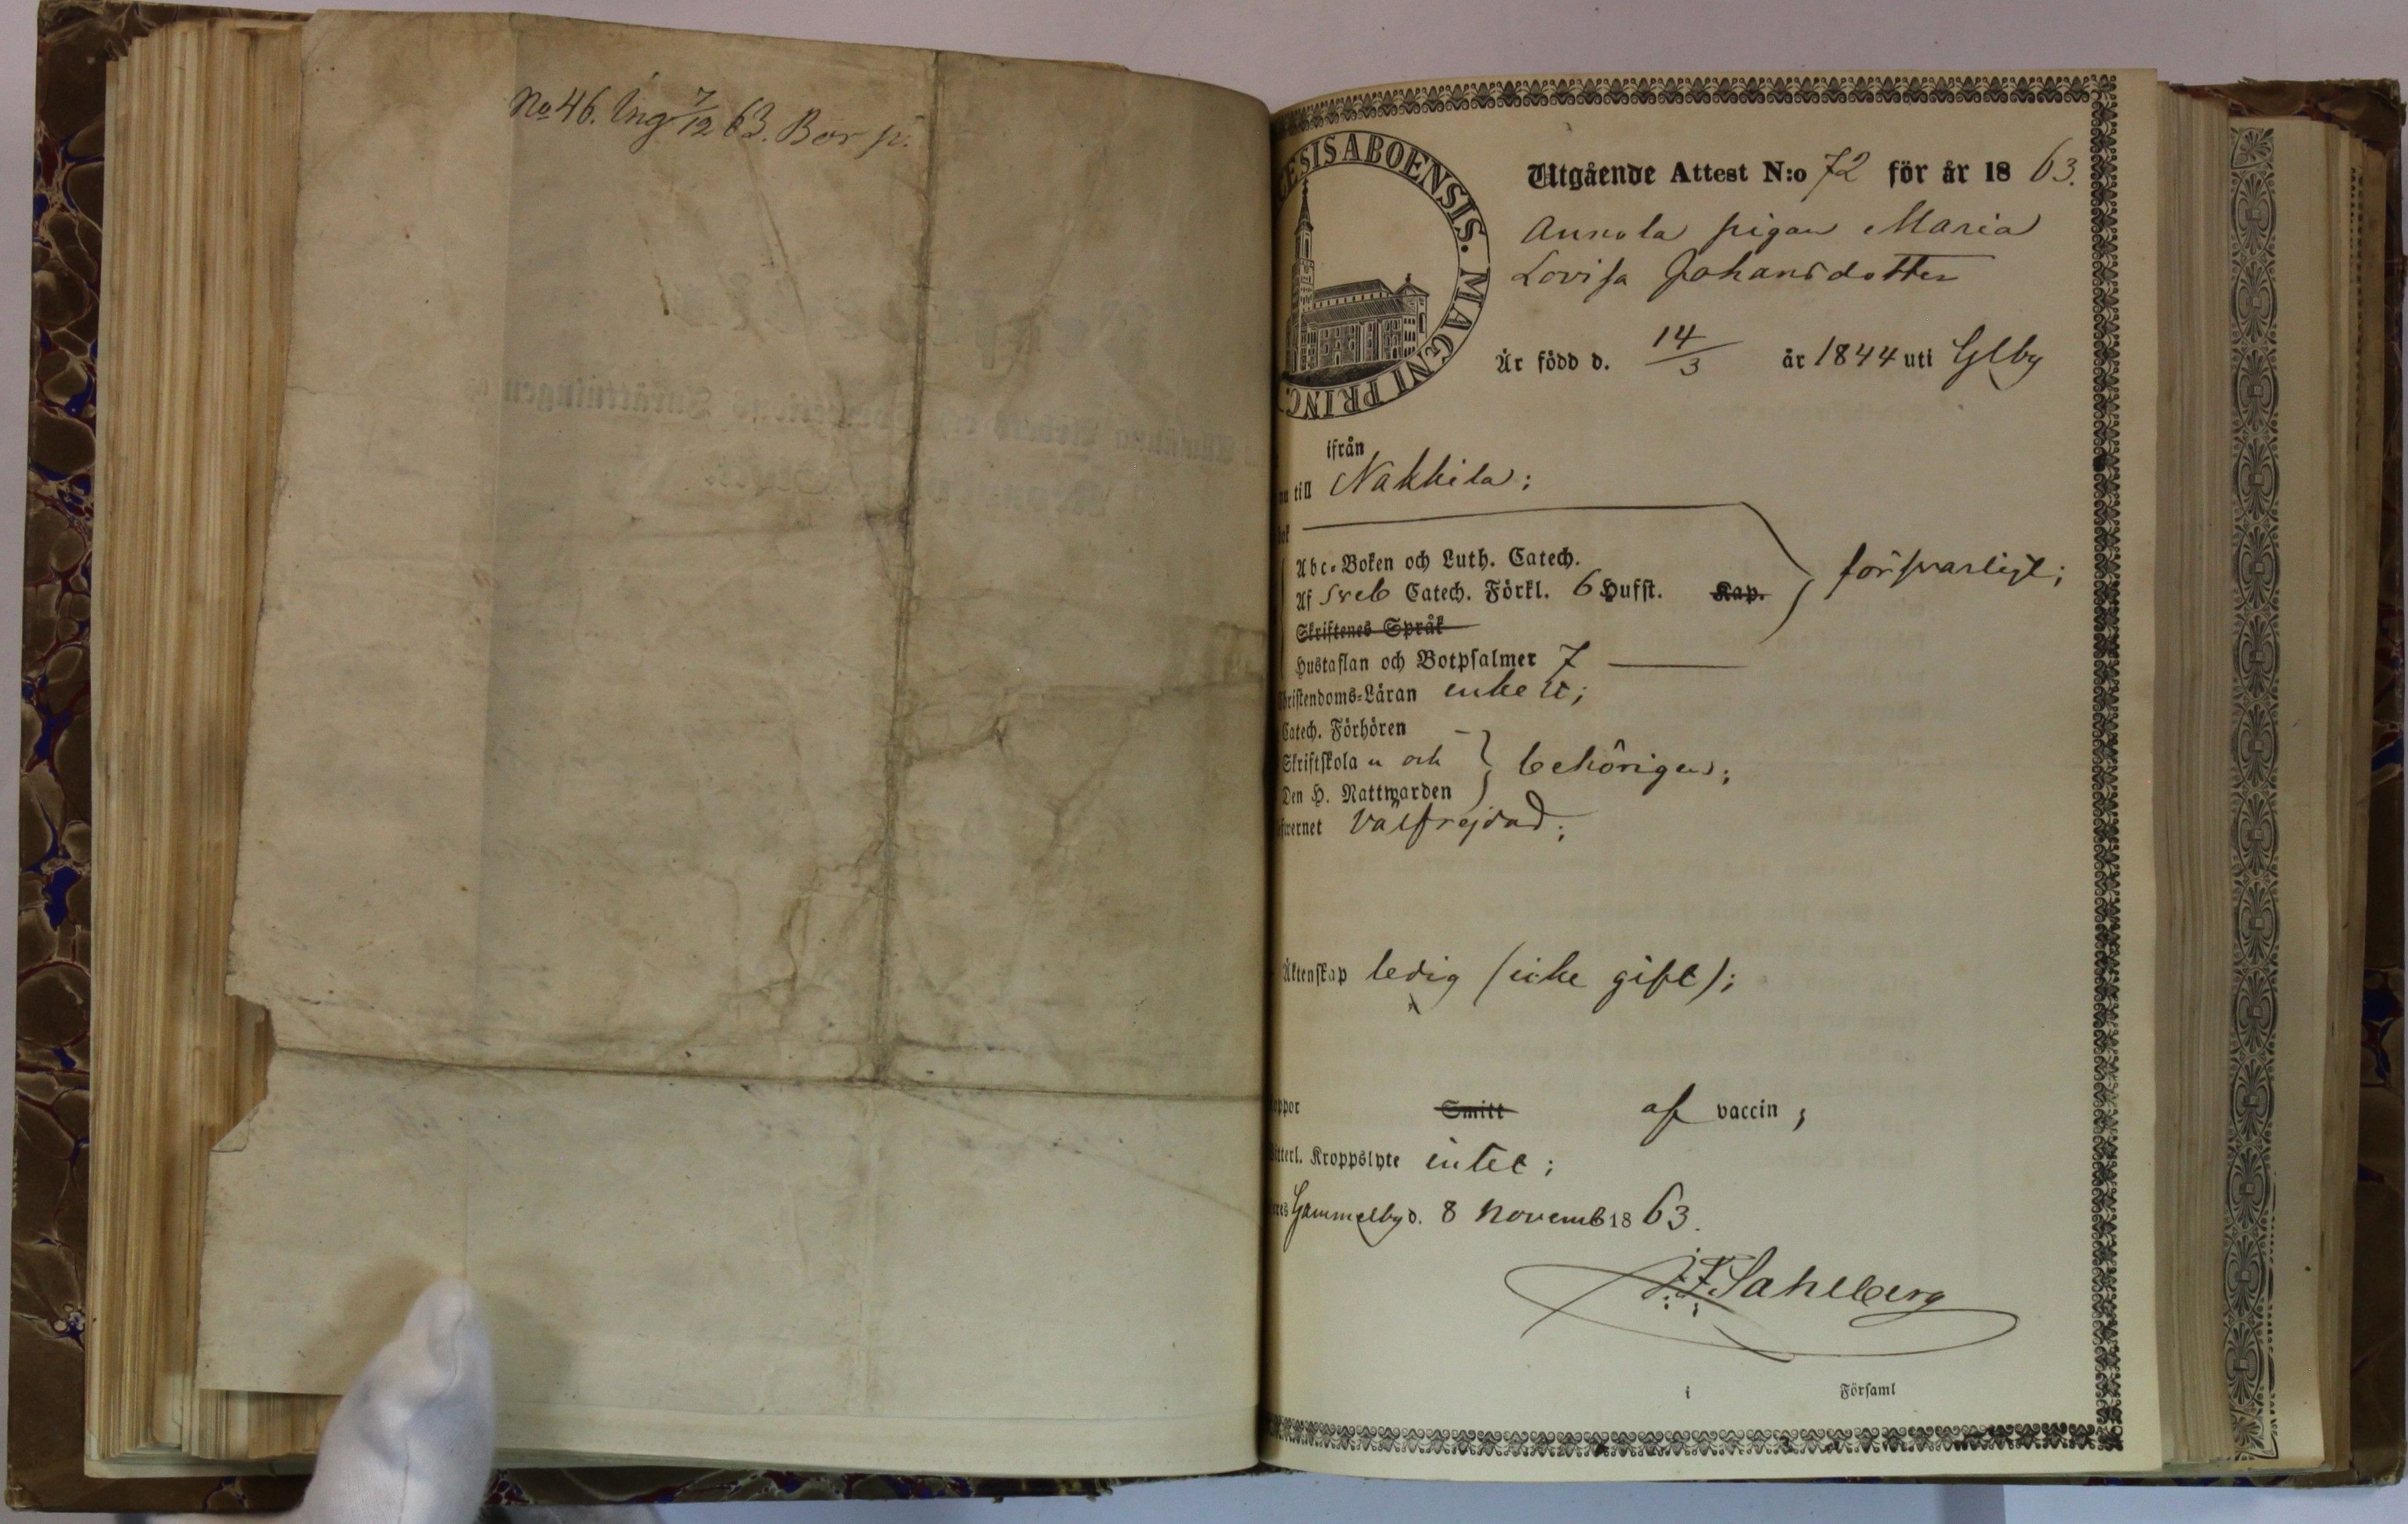 No 46. Ing 7/12 63. Bor p.
ESIS ABOENSIS. MAGNI PRINC.
Utgående Attest N:o 72 för år 18 63.
Annola pigan Maria
Lovisa Johansdotter
Är född d. 14/3 år 1844 uti Glby
ifrån
till Nakkila;
Abc-Boken och Luth. Catech.
Af Sveb Catech. Förkl. 6 Hufst. Kap. försvarligt;
Skriftenes Språk
Hustaflan och Botpsalmer 7
Christendoms-Läran enkelt;
Catech. Förhören
Skriftskola n och behörigen;
Den H. Nattwarden
wernet välfrejdad;
Äktenskap ledig (icke gift);
oppor Smitt af vaccin;
itterl. Kroppslyte intet;
Gammelby d. 8 Novemb 18 63.
J. F. Sahlberg
i Församl